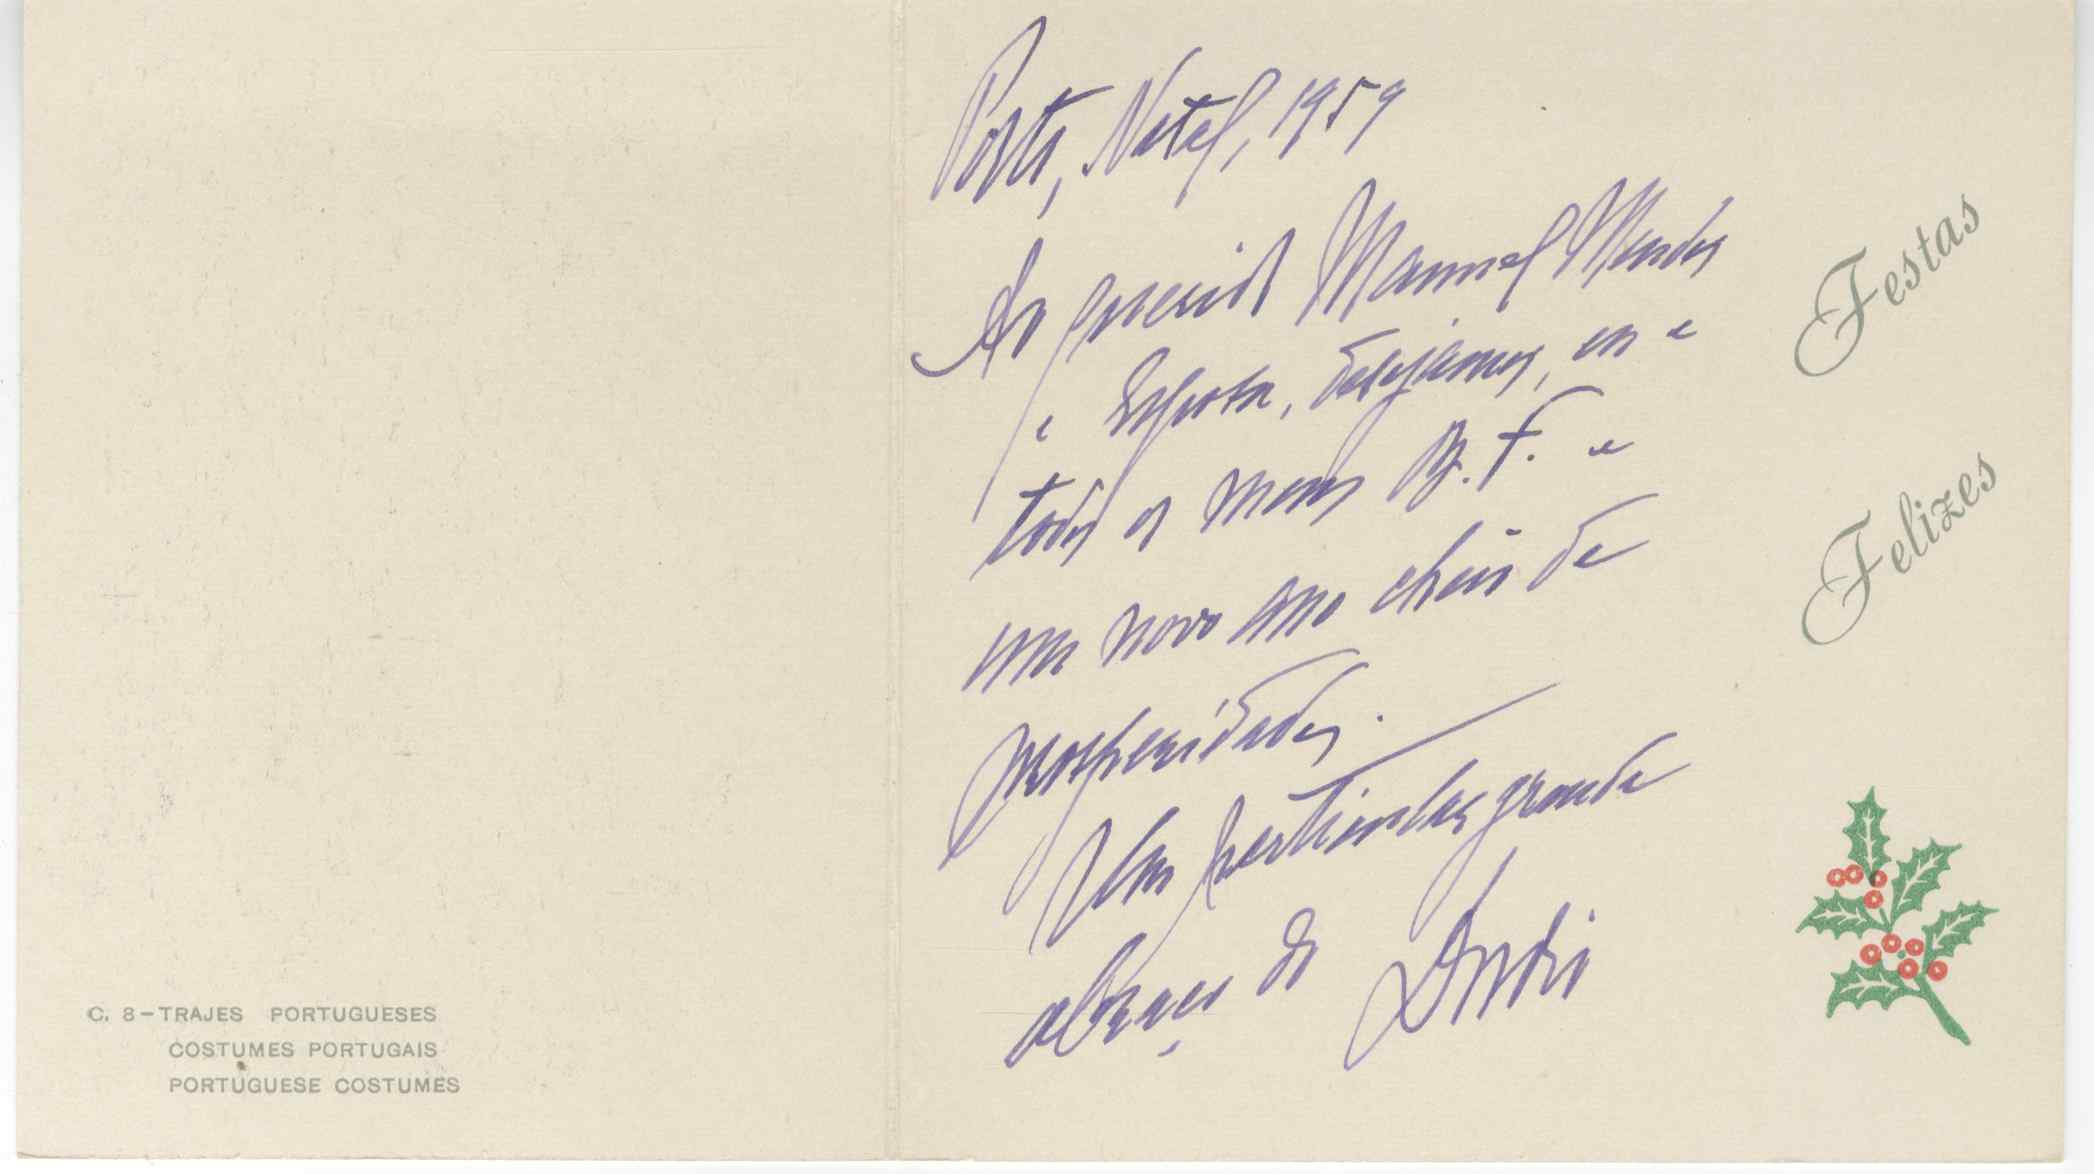 C. 8 – TRAJES PORTUGUESES
COSTUMES PORTUGAIS
PORTUGUESE COSTUMES
Porto, Natal, 1959
Ao querido Manuel Mendes
e Esposa, desejamos, eu e
todos os meus B. F. e
um novo ano cheio de
prosperidades.
Um particular grande
abraço do
Festas
Felizes